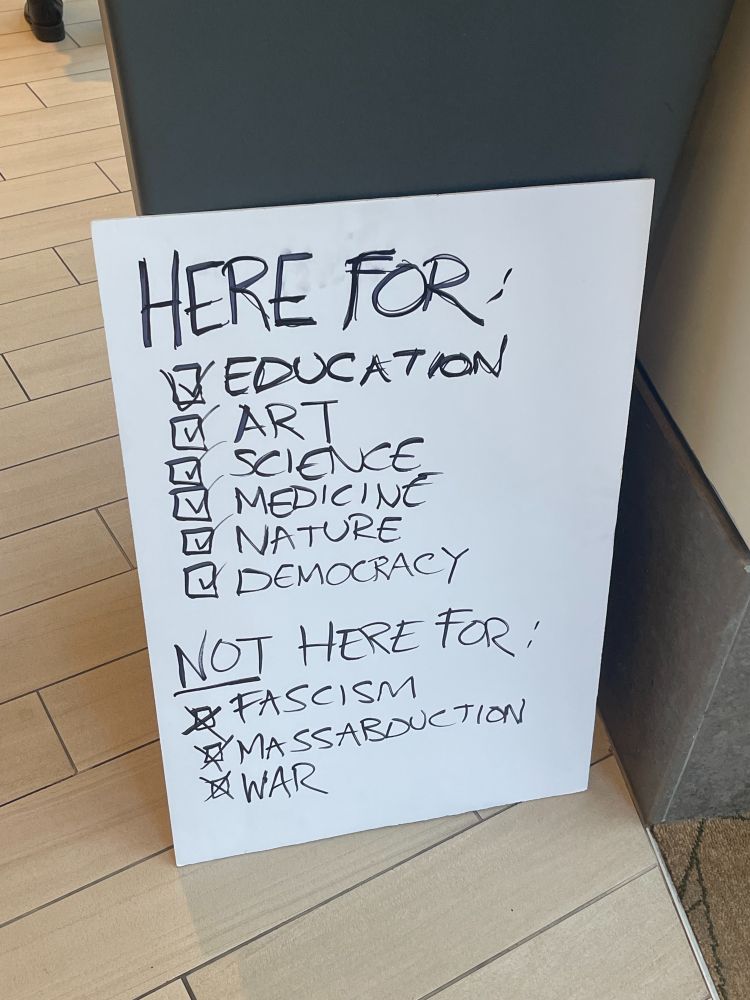 HERE FOR:
EDUCATION
ART
SCIENCE
MEDICINE
NATURE
DEMOCRACY
NOT HERE FOR:
FASCISM
MASSABDUCTION
WAR